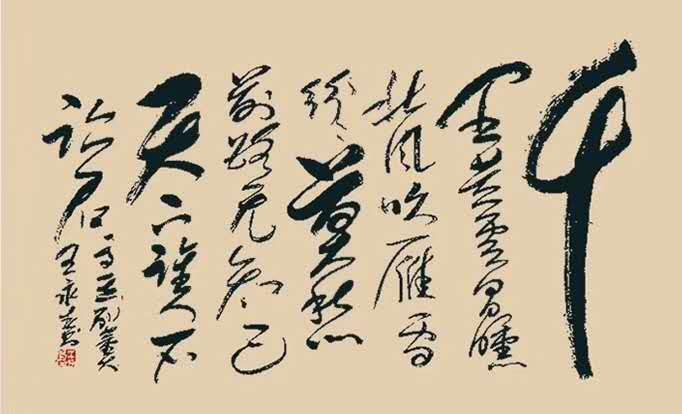 千
里黄云白日曛
北风吹雁雪
纷纷莫愁
前路无知己
天下谁人不
识君
高适别董大
王永